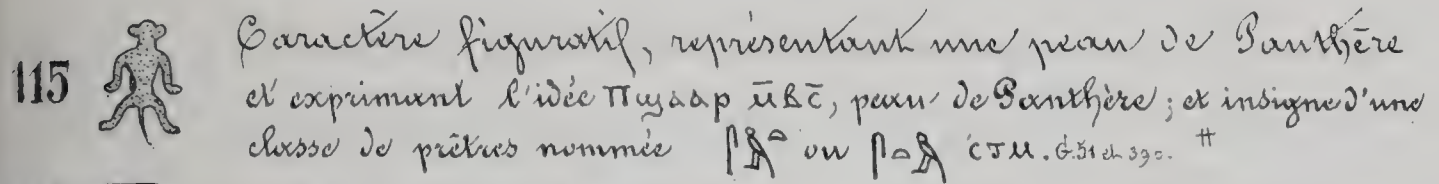 115 Caractère figuratif, représentant une peau de Panthère
et exprimant l'idée Ⲡϣⲁⲁⲣ ⲙ̄ⲃⲥ̄, peau de Panthère; et insigne d'une
classe de prêtres nommée ou ⲥⲧⲙ. G. 51 et 390. #